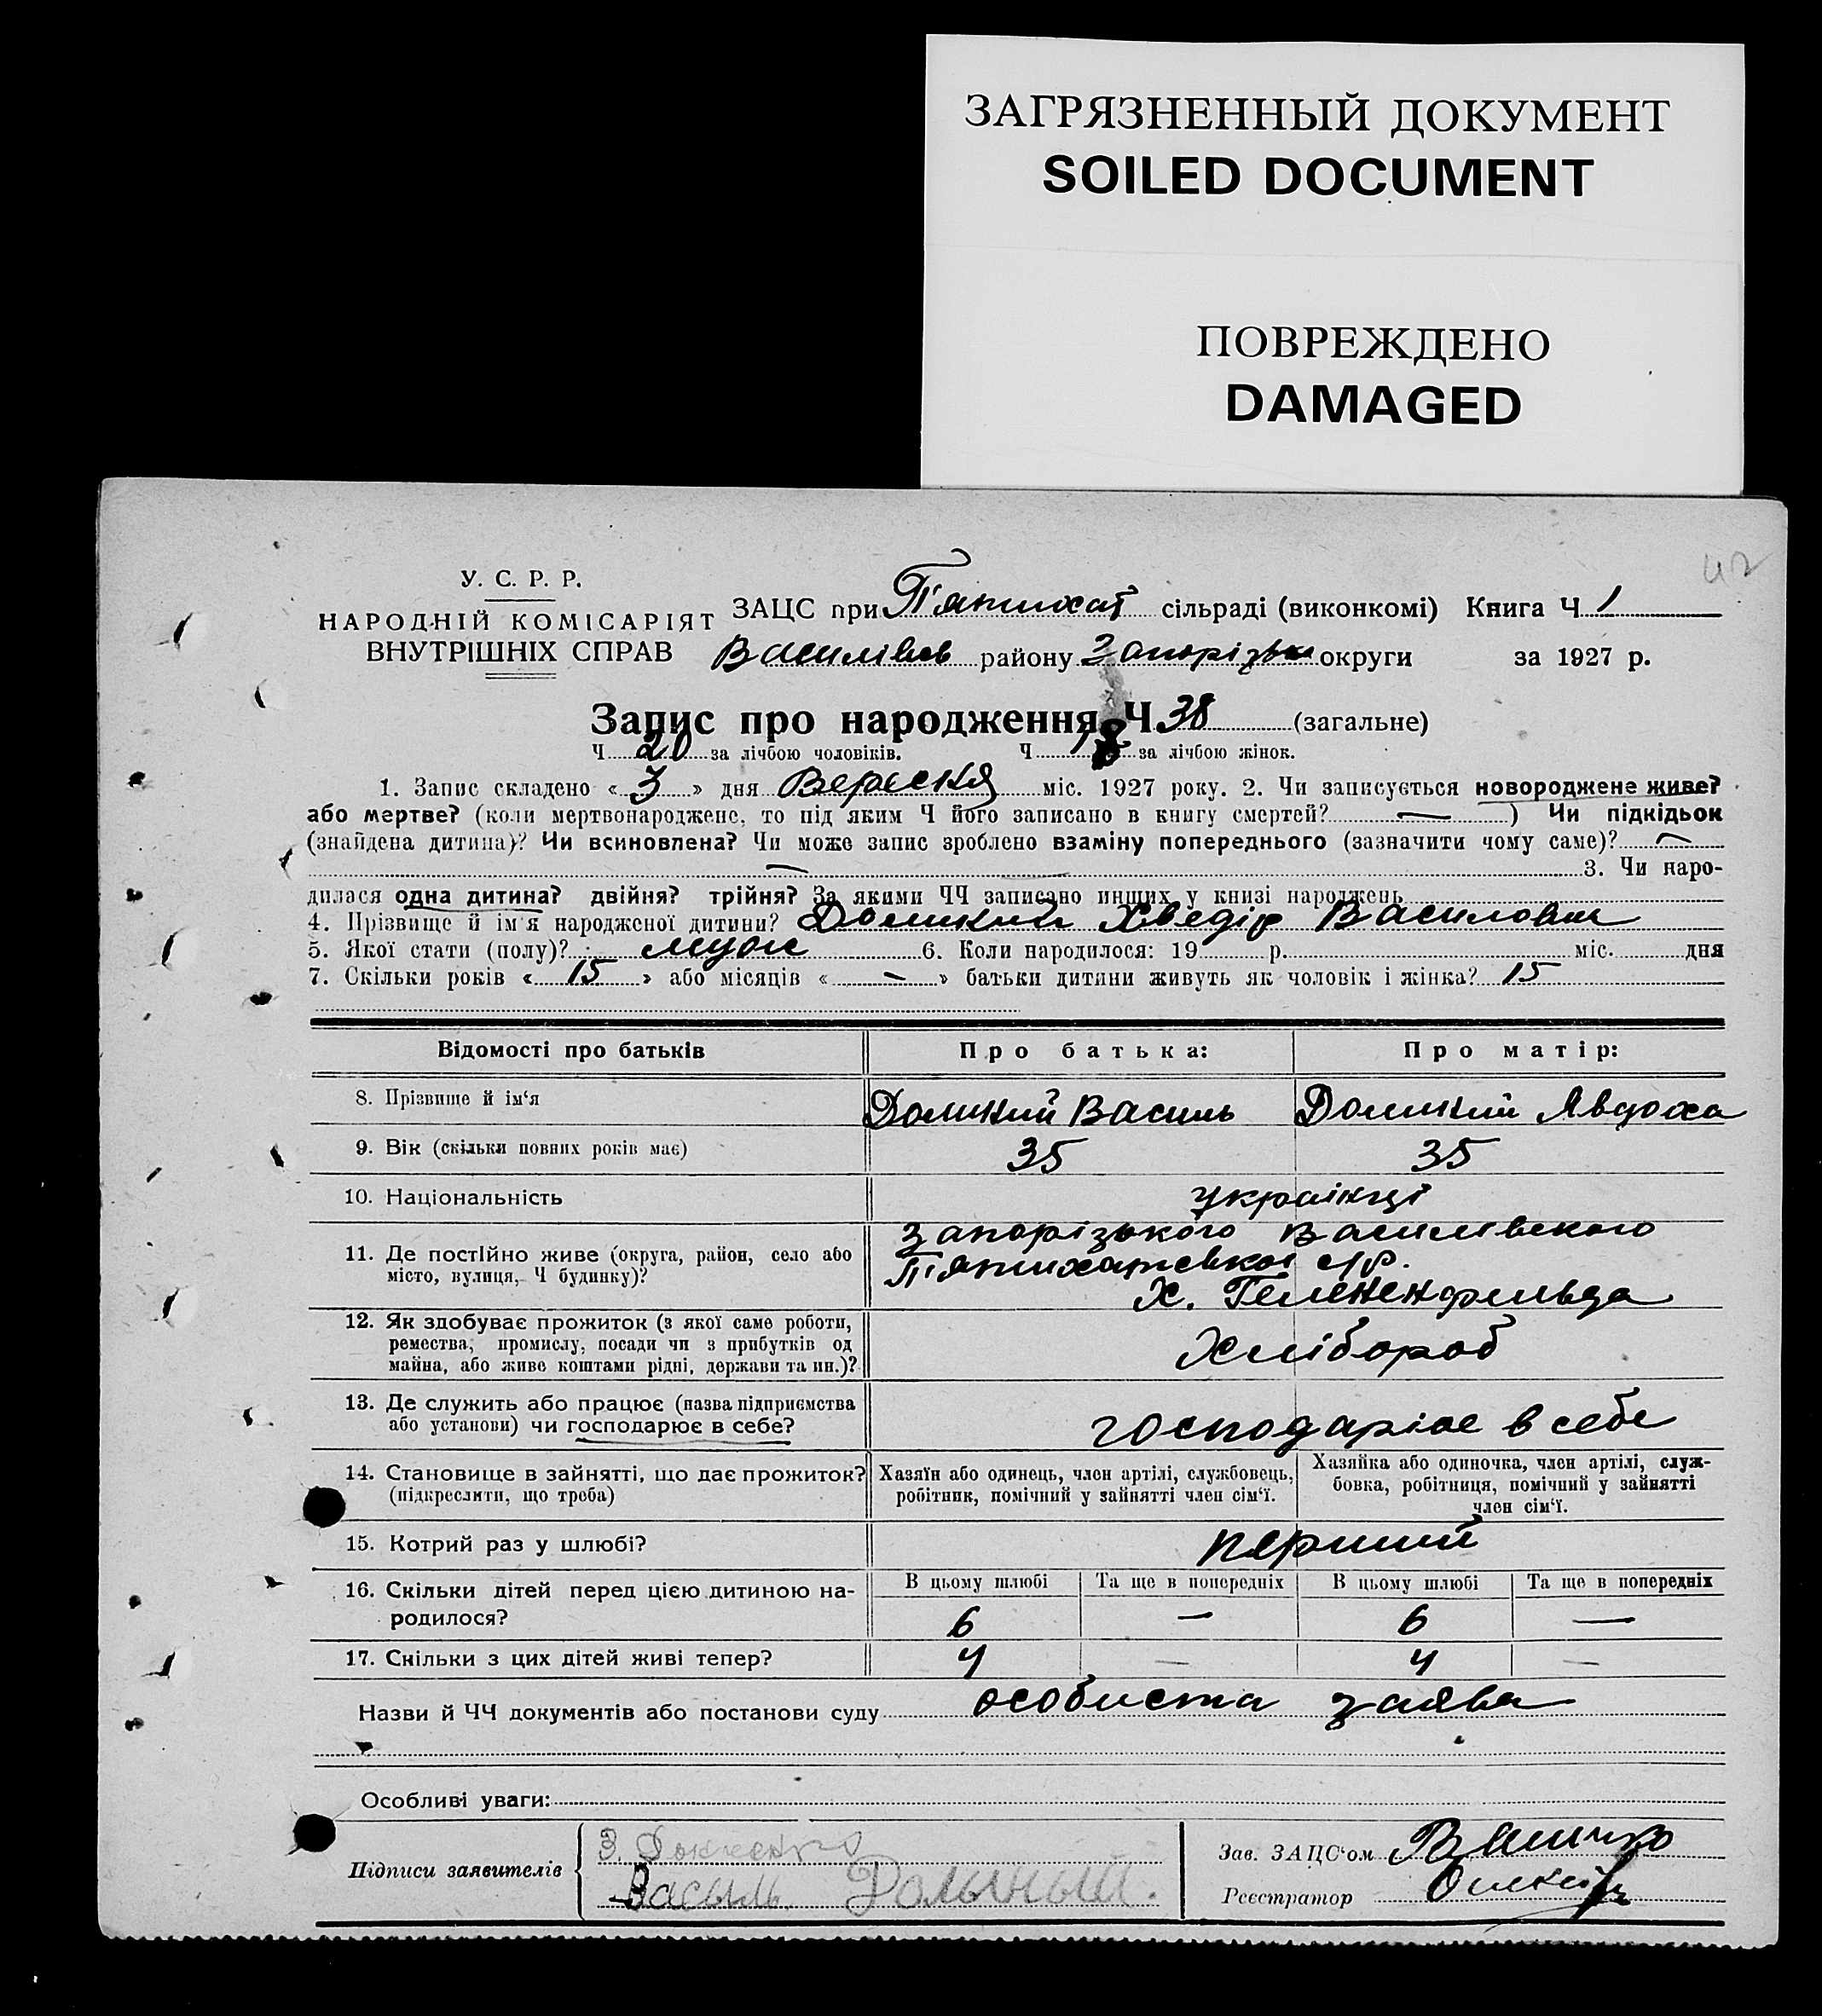 ЗАГРЯЗНЕННЫЙ ДОКУМЕНТ
SOILED DOCUMENT
ПОВРЕЖДЕНО
DAMAGED
42
У. С. Р. Р.
НАРОДНІЙ КОМІСАРІЯТ
ВНУТРІШНІХ СПРАВ
ЗАЦС при П'ятихат сільраді (виконкомі) Книга Ч 1
Василівсь району Запорізьк округи за 1927 р.
Запис про народження Ч 38 (загальне)
Ч 20 за лічбою чоловіків. Ч 18 за лічбою жінок.
1. Запис складено « 3 » дня Вересня міс. 1927 року. 2. Чи записується новороджене живе?
або мертве? (коли мертвонароджене, то під яким Ч його записано в книгу смертей? — ) Чи підкідьок
(знайдена дитина)? Чи всиновлена? Чи може запис зроблено взаміну попереднього (зазначити чому саме)? —
— 3. Чи наро-
дилася одна дитина? двійня? трійня? За якими ЧЧ записано инших у книзі народжень
4. Прізвище й ім'я народженої дитини? Хведір Василович
5. Якої стати (полу)? муж 6. Коли народилося: 19 р. міс. дня
7. Скільки років « 15 » або місяців « — » батьки дитини живуть як чоловік і жінка? 15
Відомості про батьків Про батька: Про матір:
8. Прізвище й ім'я Василь Явдоха
9. Вік (скільки повних років має) 35 35
10. Національність українці
11. Де постійно живе (округа, район, село або
місто, вулиця, Ч будинку)?
Запорізького Василівського
П'ятихатської с/р.
Х. Геленендфельда
12. Як здобуває прожиток (з якої саме роботи,
ремества, промислу, посади чи з прибутків од
майна, або живе коштами рідні, держави та ин.)?
Хлібороб
13. Де служить або працює (назва підприємства
або установи) чи господарює в себе?
господаріює в себе
14. Становище в зайнятті, що дає прожиток?
(підкреслити, що треба)
Хазяїн або одинець, член артілі, службовець,
робітник, помічний у зайнятті член сім'ї.
Хазяйка або одиночка, член артілі, служ-
бовка, робітниця, помічний у зайнятті
член сім'ї.
15. Котрий раз у шлюбі? перший
16. Скільки дітей перед цією дитиною на-
родилося?
В цьому шлюбі Та ще в попередніх В цьому шлюбі Та ще в попередніх
6 — 6 —
17. Скільки з цих дітей живі тепер? 4 — 4 —
Назви й ЧЧ документів або постанови суду особиста заява
Особливі уваги:
Підписи заявителів
Васыль
Зав. ЗАЦС'ом
Реєстратор